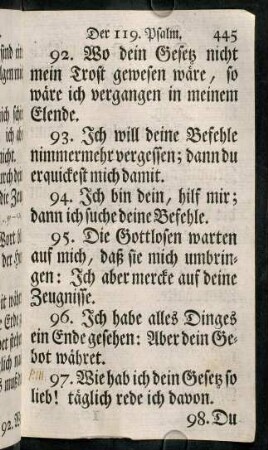 Der 119. Psalm. 445
92. Wo dein Gesetz nicht
mein Trost gewesen wäre, so
wäre ich vergangen in meinem
Elende.
93. Ich will deine Befehle
nimmermehr vergessen; dann du
erquickest mich damit.
94. Ich bin dein, hilf mir;
dann ich suche deine Befehle.
95. Die Gottlosen warten
auf mich, daß sie mich umbrin-
gen: Ich aber mercke auf deine
Zeugnisse.
96. Ich habe alles Dinges
ein Ende gesehen: Aber dein Ge-
bot währet.
97. Wie hab ich dein Gesetz so
lieb! täglich rede ich davon.
98. Du